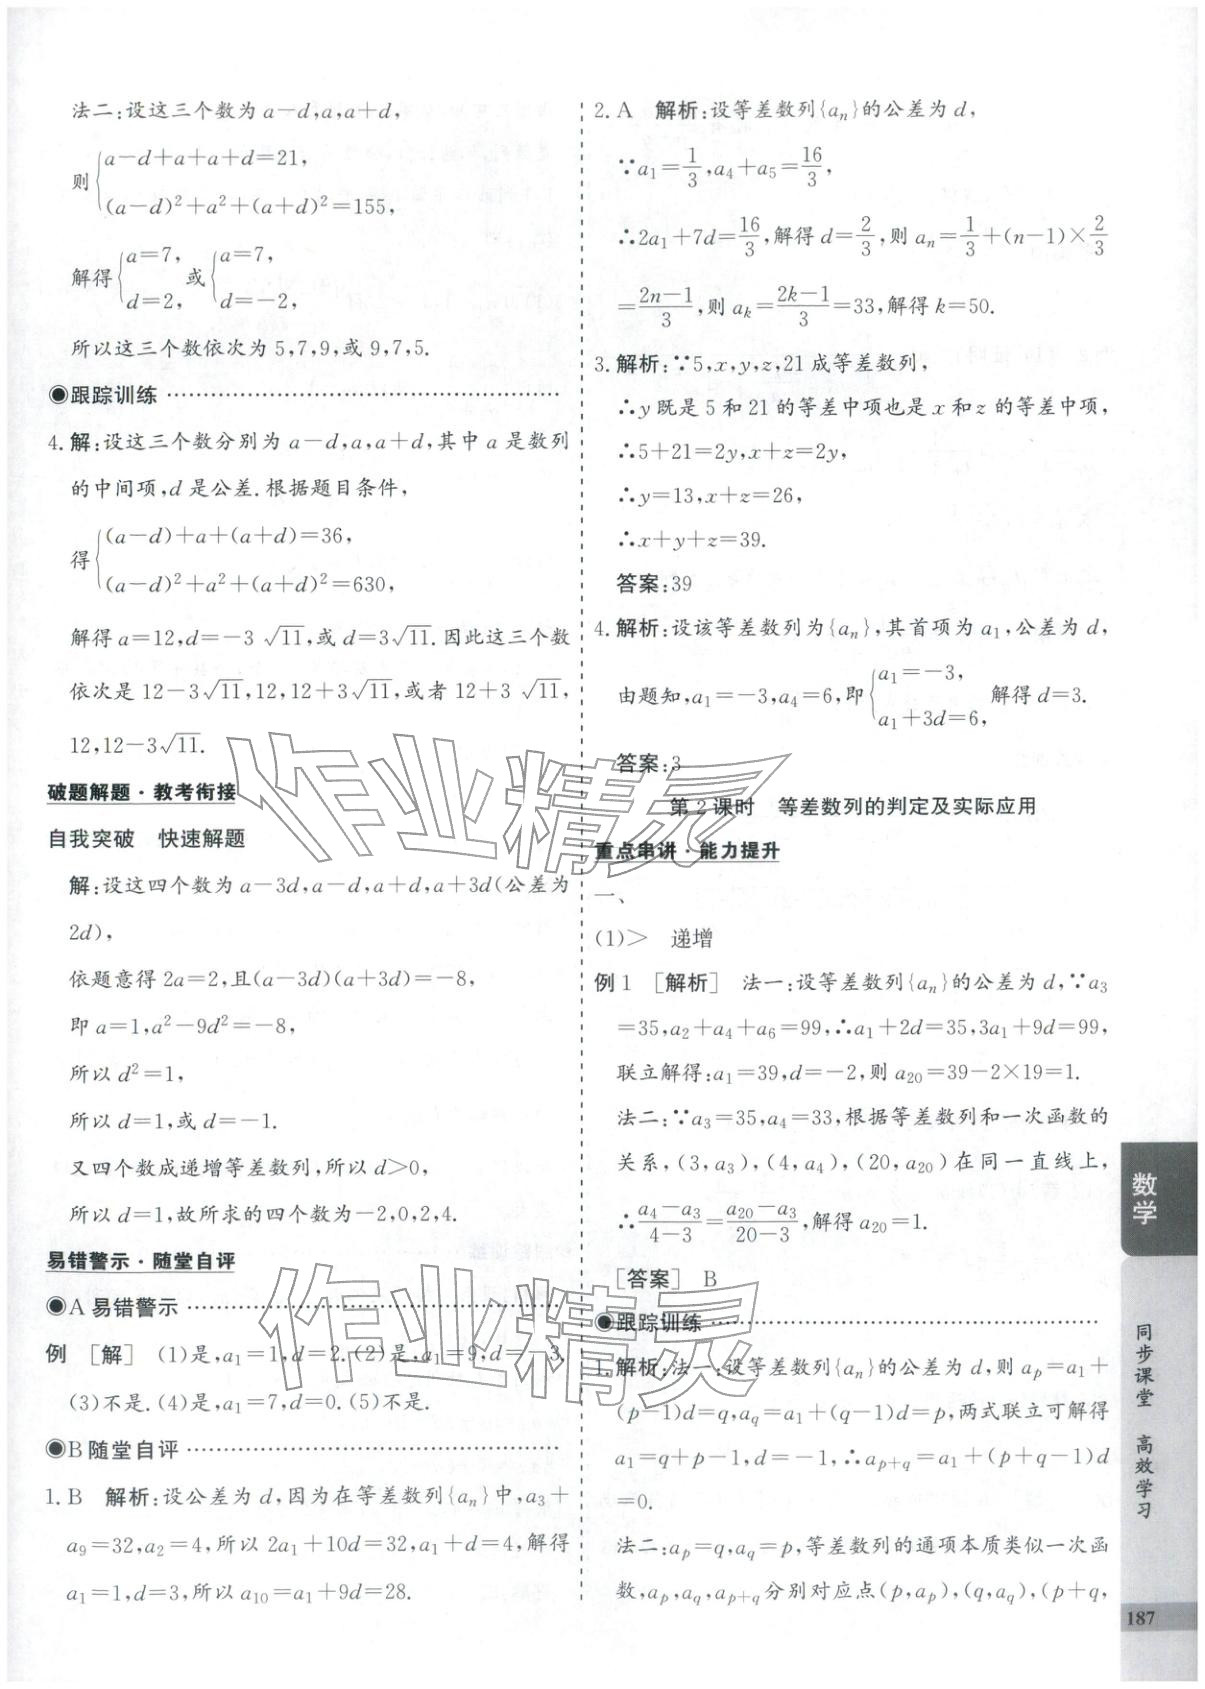 法二:设这三个数为 a－d,a,a＋d,
则{a－d＋a＋a＋d＝21,
(a－d)²＋a²＋(a＋d)²＝155,
解得{a＝7, d＝2, 或{a＝7, d＝－2,
所以这三个数依次为 5,7,9,或 9,7,5.
◉跟踪训练
4. 解:设这三个数分别为 a－d,a,a＋d,其中 a 是数列
的中间项,d 是公差.根据题目条件,
得{(a－d)＋a＋(a＋d)＝36,
(a－d)²＋a²＋(a＋d)²＝630,
解得 a＝12,d＝－3√11,或 d＝3√11.因此这三个数
依次是 12－3√11,12,12＋3√11,或者 12＋3√11,
12,12－3√11.
破题解题·教考衔接
自我突破 快速解题
解:设这四个数为 a－3d,a－d,a＋d,a＋3d(公差为
2d),
依题意得 2a＝2,且(a－3d)(a＋3d)＝－8,
即 a＝1,a²－9d²＝－8,
所以 d²＝1,
所以 d＝1,或 d＝－1.
又四个数成递增等差数列,所以 d＞0,
所以 d＝1,故所求的四个数为－2,0,2,4.
易错警示·随堂自评
◉A 易错警示
例 [解] (1)是,a₁＝1,d＝2.(2)是,a₁＝9,d＝－3.
(3)不是.(4)是,a₁＝7,d＝0.(5)不是.
◉B 随堂自评
1. B 解析:设公差为 d,因为在等差数列{aₙ}中,a₃＋
a₉＝32,a₂＝4,所以 2a₁＋10d＝32,a₁＋d＝4,解得
a₁＝1,d＝3,所以 a₁₀＝a₁＋9d＝28.
2. A 解析:设等差数列{aₙ}的公差为 d,
∵a₁＝1/3,a₄＋a₅＝16/3,
∴2a₁＋7d＝16/3,解得 d＝2/3,则 aₙ＝1/3＋(n－1)×2/3
＝(2n－1)/3,则 aₖ＝(2k－1)/3＝33,解得 k＝50.
3. 解析:∵5,x,y,z,21 成等差数列,
∴y 既是 5 和 21 的等差中项也是 x 和 z 的等差中项,
∴5＋21＝2y,x＋z＝2y,
∴y＝13,x＋z＝26,
∴x＋y＋z＝39.
答案:39
4. 解析:设该等差数列为{aₙ},其首项为 a₁,公差为 d,
由题知,a₁＝－3,a₄＝6,即{a₁＝－3, a₁＋3d＝6, 解得 d＝3.
答案:3
第 2 课时 等差数列的判定及实际应用
重点串讲·能力提升
一、
(1)＞ 递增
例 1 [解析] 法一:设等差数列{aₙ}的公差为 d,∵a₃
＝35,a₂＋a₄＋a₆＝99,∴a₁＋2d＝35,3a₁＋9d＝99,
联立解得:a₁＝39,d＝－2,则 a₂₀＝39－2×19＝1.
法二:∵a₃＝35,a₄＝33,根据等差数列和一次函数的
关系,(3,a₃),(4,a₄),(20,a₂₀)在同一直线上,
∴(a₄－a₃)/(4－3)＝(a₂₀－a₃)/(20－3),解得 a₂₀＝1.
[答案] B
◉跟踪训练
1. 解析:法一:设等差数列{aₙ}的公差为 d,则 aₚ＝a₁＋
(p－1)d＝q,a_q＝a₁＋(q－1)d＝p,两式联立可解得
a₁＝q＋p－1,d＝－1,∴a_{p＋q}＝a₁＋(p＋q－1)d
＝0.
法二:aₚ＝q,a_q＝p,等差数列的通项本质类似一次函
数,aₚ,a_q,a_{p＋q}分别对应点(p,aₚ),(q,a_q),(p＋q,
数学
同步课堂 高效学习
187
作业精灵
作业精灵